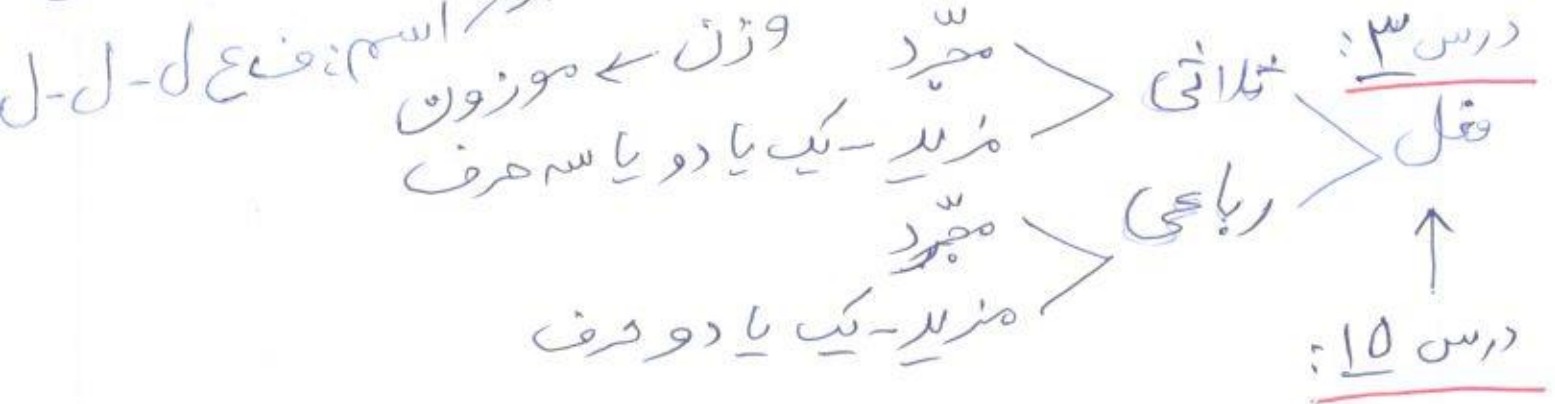 درس ۳:
فعل
ثلاثی
مجرّد
مزید - یک یا دو یا سه حرف
رباعی
مجرّد
مزید - یک یا دو حرف
وزن ← موزون
اسم: ف ع ل - ل - ل
درس ۱۵: